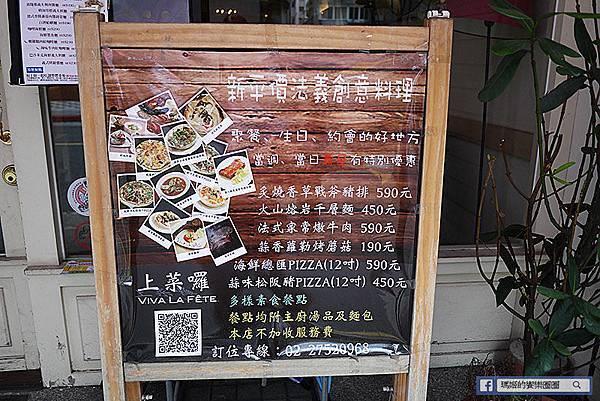 新平價法義創意料理
聚餐、生日、約會的好地方
當週、當日壽星有特別優惠
炙燒香草戰斧豬排 590元
火山熔岩千層麵 450元
法式家常燉牛肉 590元
蒜香雞勒烤蘑菇 190元
海鮮總匯PIZZA(12吋) 590元
蒜味松阪豬PIZZA(12吋) 450元
多樣素食餐點
餐點均附主廚湯品及麵包
本店不加收服務費
訂位專線：02-27520968
上菜囉
VIVA LA FÊTE
瑪姬的餐樂圈圈